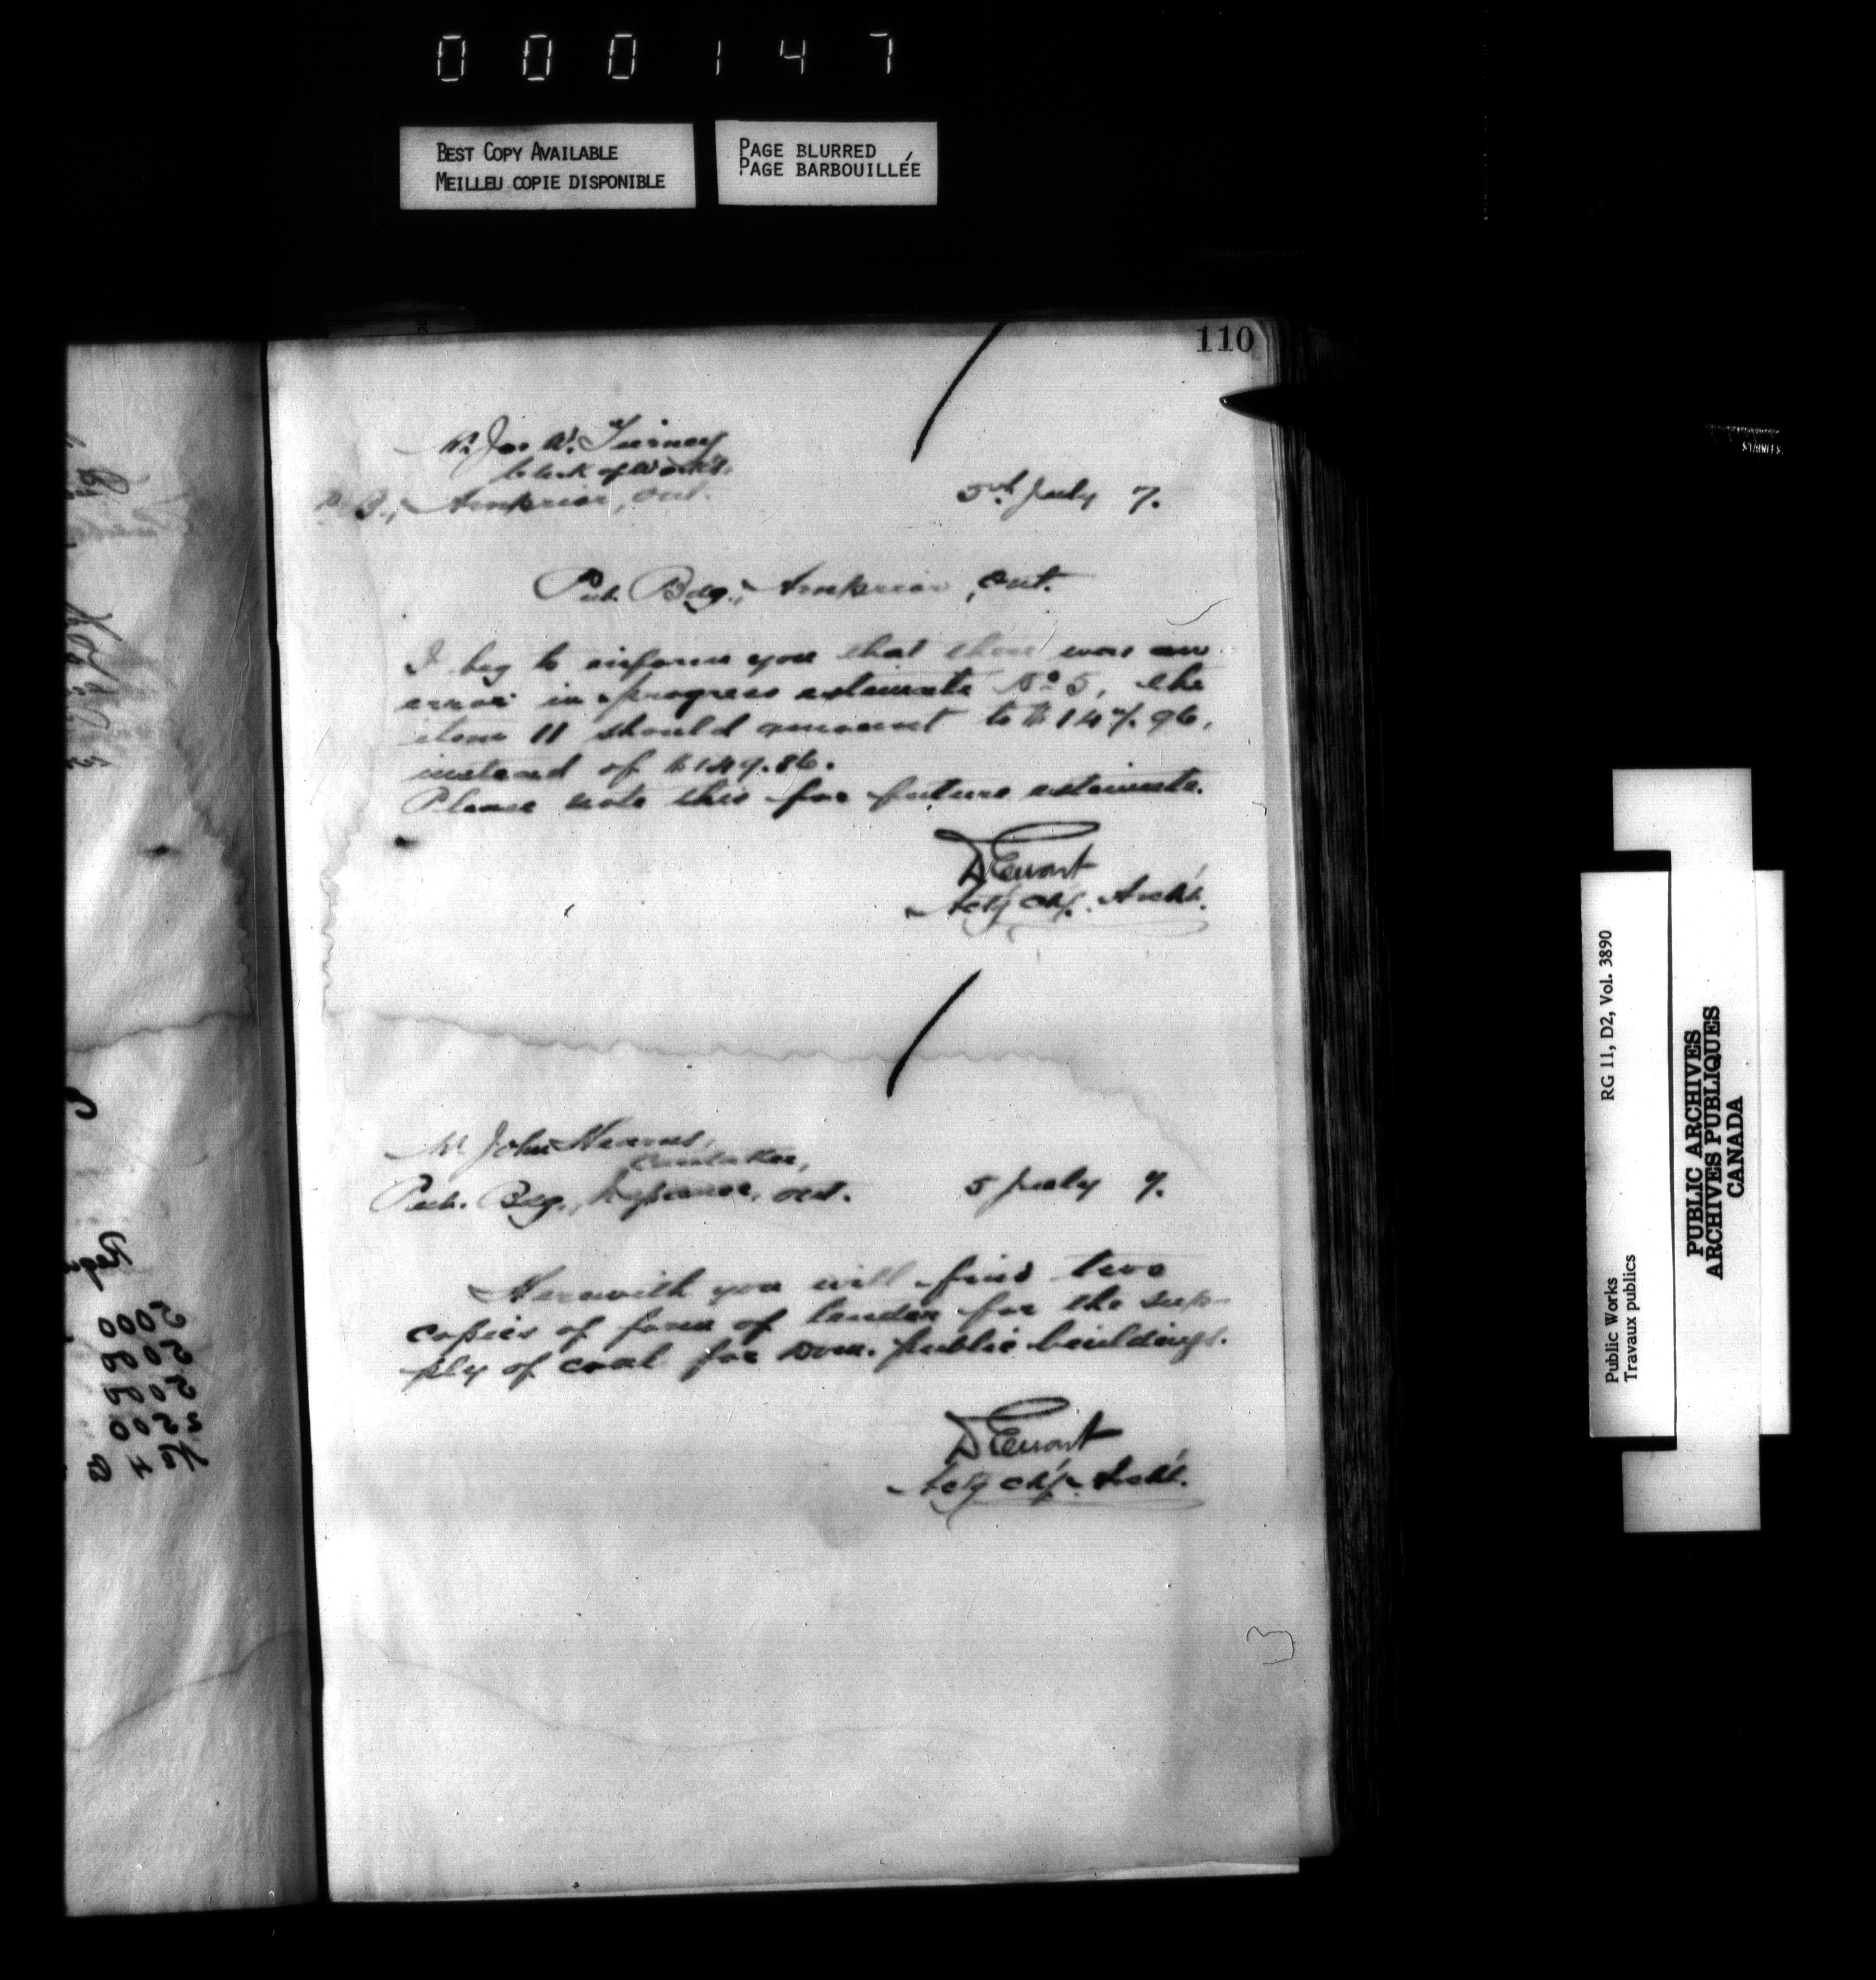 000147
BEST COPY AVAILABLE
MEILLEU COPIE DISPONIBLE
PAGE BLURRED
PAGE BARBOUILLÉE
110
Mr Jas. W. Tierney
Clerk of Works.
P. B., Arnprior, Ont.
5th July 7.
Pub. Bdg., Arnprior, Ont.
I beg to inform you that there was an
error in progress estimate No 5, the
item 11 should amount to $147.96,
instead of $149.86.
Please note this for future estimate.
D Ewart
Act'g Ch'f. Archt.
Mr John Hearns,
Caretaker,
Pub. Bdg., Napanee, Ont.
5 July 7.
Herewith you will find two
copies of form of tender for the sup-
ply of coal for Dom. public buildings.
D Ewart
Act'g Ch'f. Archt.
3
RG 11, D2, Vol. 3890
Public Works
Travaux publics
PUBLIC ARCHIVES
ARCHIVES PUBLIQUES
CANADA